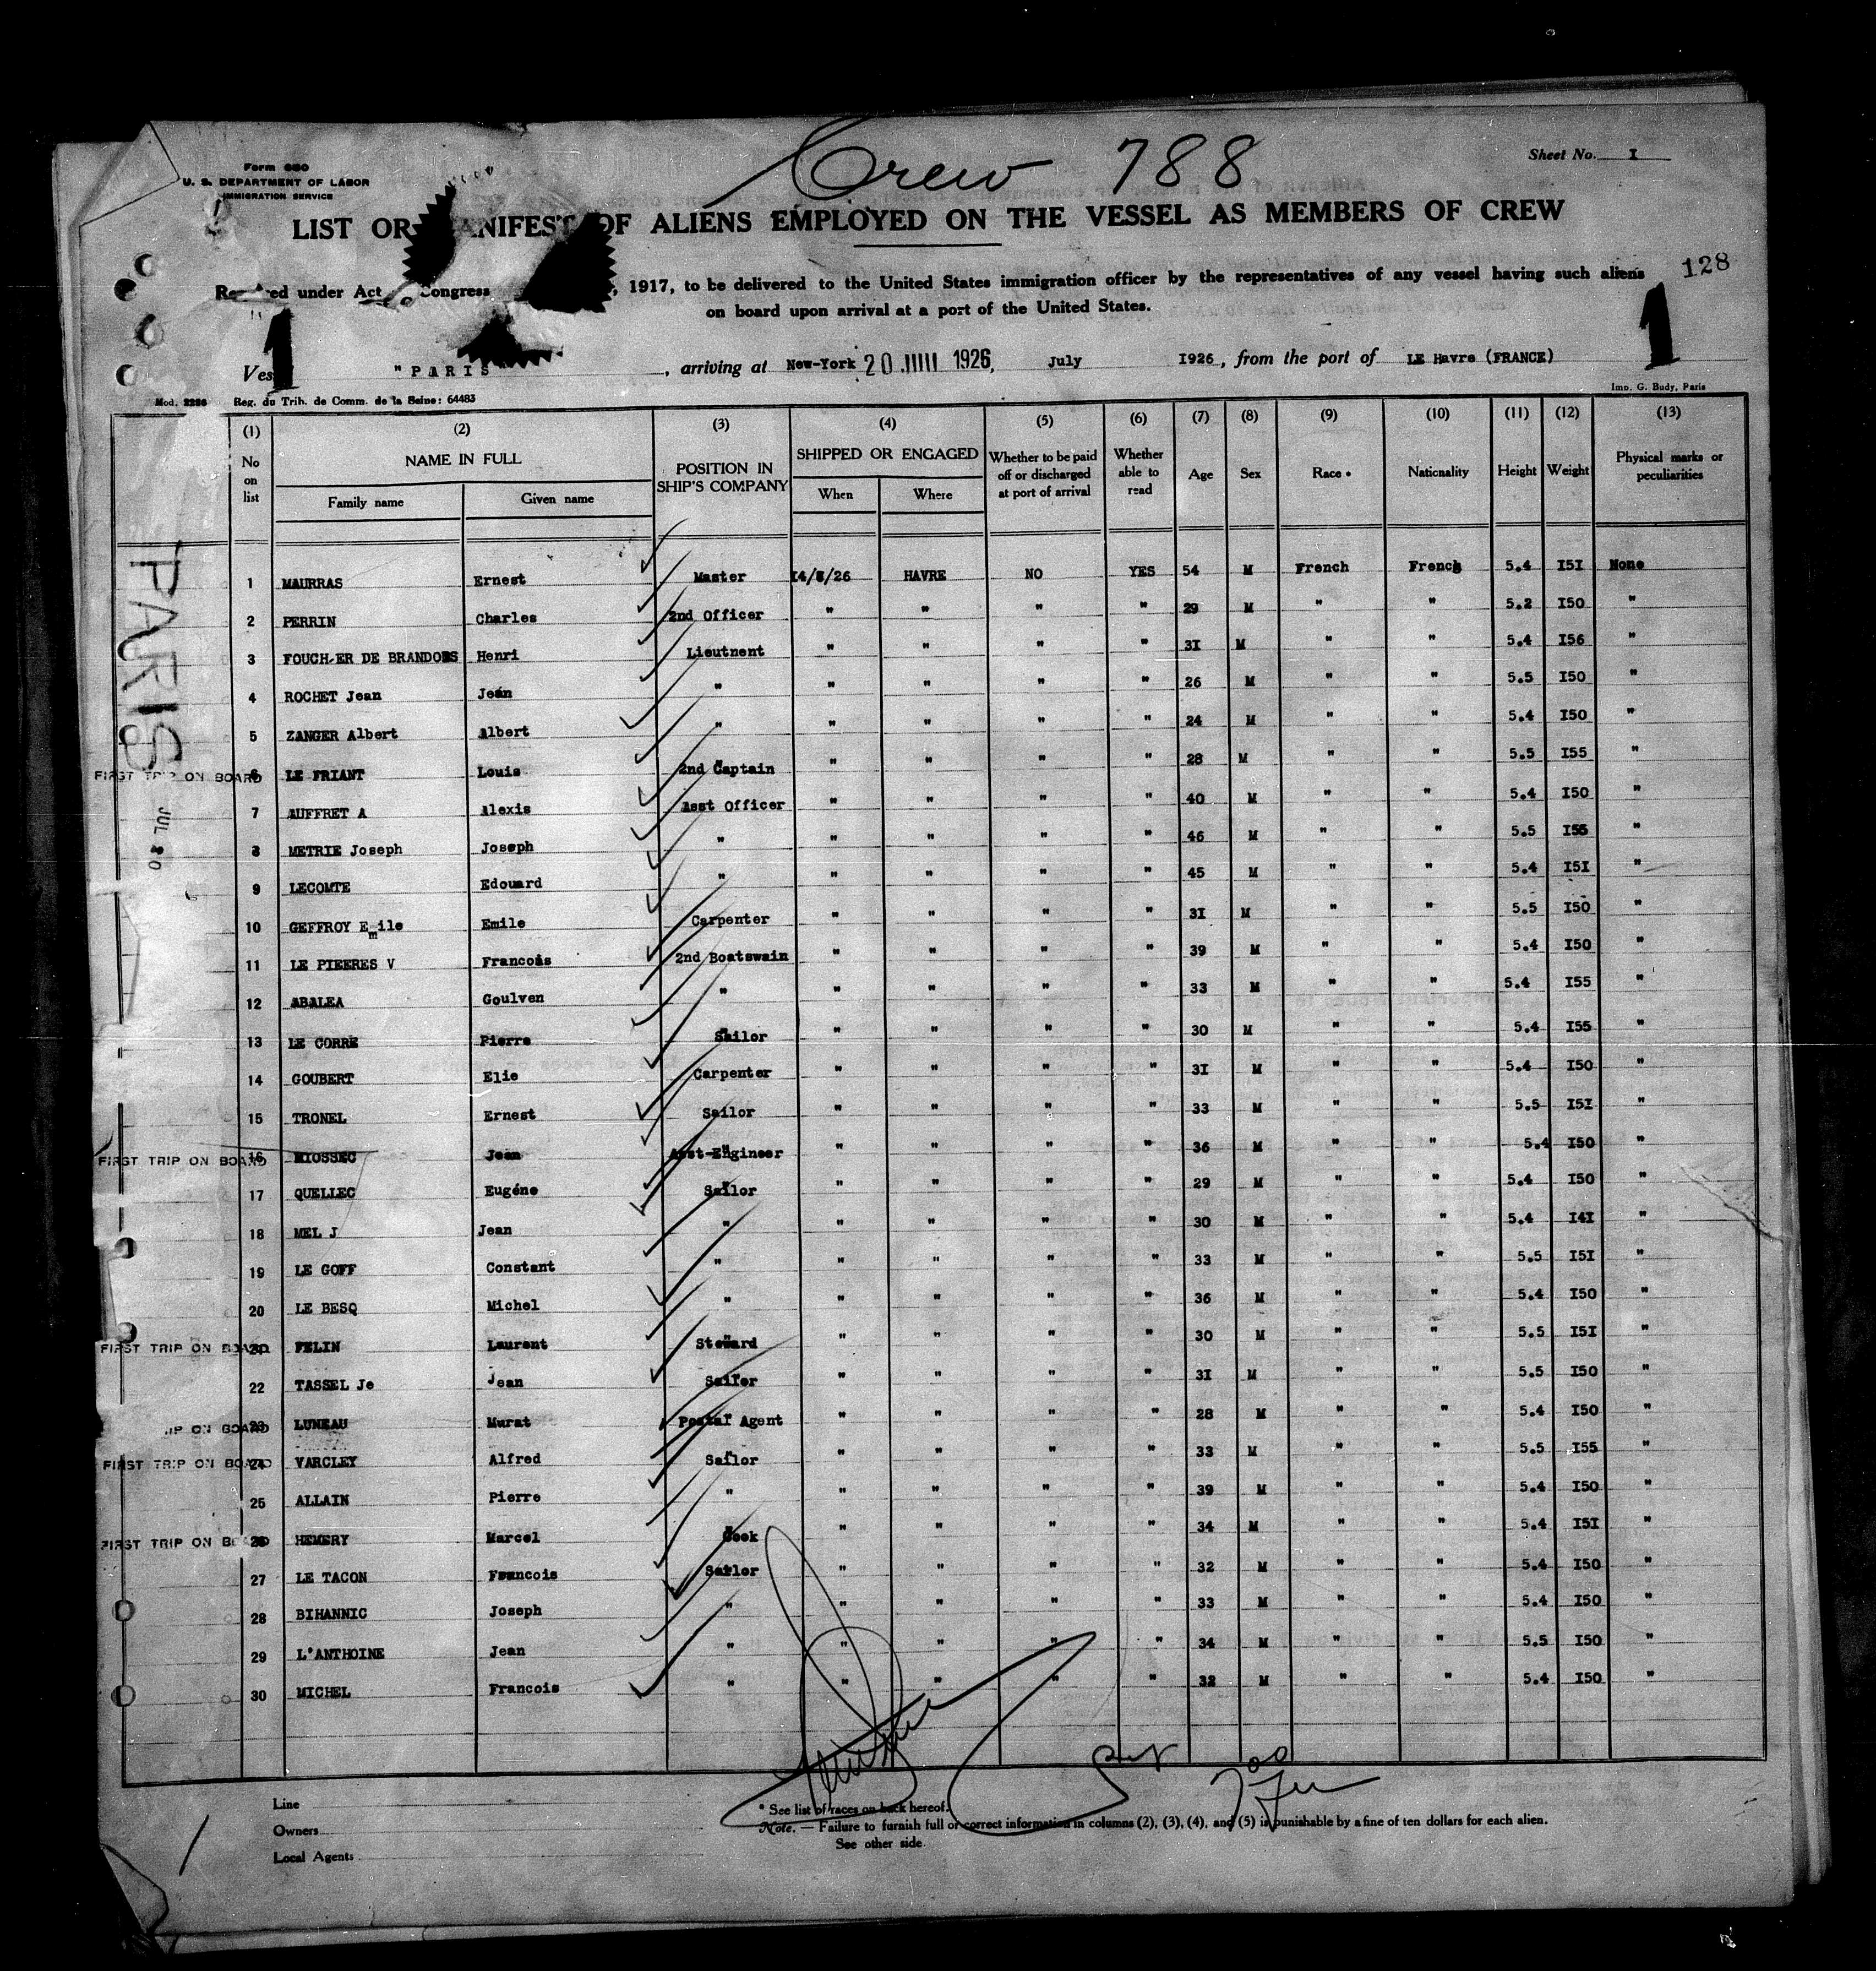 Crew 788
Sheet No. I
Form 680
U. S. DEPARTMENT OF LABOR
IMMIGRATION SERVICE
LIST OR MANIFEST OF ALIENS EMPLOYED ON THE VESSEL AS MEMBERS OF CREW
128
Required under Act of Congress , 1917, to be delivered to the United States immigration officer by the representatives of any vessel having such aliens
on board upon arrival at a port of the United States.
1 1
Ves "PARIS" , arriving at New-York 20 JUIL 1926, July I926, from the port of LE Havre (FRANCE)
Mod. 2286 Reg. du Trib. de Comm. de la Seine: 64483 Imp. G. Budy, Paris
(1) (2) (3) (4) (5) (6) (7) (8) (9) (10) (11) (12) (13)
No on list NAME IN FULL Family name Given name POSITION IN SHIP'S COMPANY SHIPPED OR ENGAGED When Where Whether to be paid off or discharged at port of arrival Whether able to read Age Sex Race * Nationality Height Weight Physical marks or peculiarities
PARIS
JUL 20
1 MAURRAS Ernest Master HAVRE NO YES 54 M French French 5.4 I5I None
2 PERRIN Charles 2nd Officer " " " " 29 M " " 5.2 I50 "
3 FOUCHER DE BRANDOIS Henri Lieutnent " " " " 3I M " " 5.4 I56 "
4 ROCHET Jean Jean " " " " " 26 M " " 5.5 I50 "
5 ZANGER Albert Albert " " " " " 24 M " " 5.4 I50 "
FIRST TRIP ON BOARD 6 LE FRIANT Louis 2nd Captain " " " " 28 M " " 5.5 I55 "
7 AUFFRET A Alexis Asst Officer " " " " 40 M " " 5.4 I50 "
8 METRIE Joseph Joseph " " " " " 46 M " " 5.5 I55 "
9 LECOMTE Edouard " " " " " 45 M " " 5.4 I5I "
10 GEFFROY Emile Emile Carpenter " " " " 3I M " " 5.5 I50 "
11 LE PIERRES V Francois 2nd Boatswain " " " " 39 M " " 5.4 I50 "
12 ABALEA Goulven " " " " " 33 M " " 5.4 I55 "
13 LE CORRE Pierre Sailor " " " " 30 M " " 5.4 I55 "
14 GOUBERT Elie Carpenter " " " " 3I M " " 5.4 I50 "
15 TRONEL Ernest Sailor " " " " 33 M " " 5.5 I5I "
FIRST TRIP ON BOARD 16 MIOSSEC Jean Asst-Engineer " " " " 36 M " " 5.4 I50 "
17 QUELLEC Eugéne Sailor " " " " 29 M " " 5.4 I50 "
18 MEL J Jean " " " " " 30 M " " 5.4 I4I "
19 LE GOFF Constant " " " " " 33 M " " 5.5 I5I "
20 LE BESQ Michel " " " " " 36 M " " 5.4 I50 "
FIRST TRIP ON BOARD 21 FELIN Laurent Steward " " " " 30 M " " 5.5 I5I "
22 TASSEL Je Jean Sailor " " " " 3I M " " 5.5 I50 "
IP ON BOARD 23 LUNEAU Murat Postal Agent " " " " 28 M " " 5.4 I50 "
FIRST TRIP ON BOARD 24 VARCLEY Alfred Sailor " " " " 33 M " " 5.5 I55 "
25 ALLAIN Pierre " " " " " 39 M " " 5.4 I50 "
FIRST TRIP ON BOARD 26 HEMERY Marcel Cook " " " " 34 M " " 5.4 I5I "
27 LE TACON Francois Sailor " " " " 32 M " " 5.4 I50 "
28 BIHANNIC Joseph " " " " " 33 M " " 5.4 I50 "
29 L'ANTHOINE Jean " " " " " 34 M " " 5.5 I50 "
30 MICHEL Francois " " " " " 32 M " " 5.4 I50 "
Line
Owners
Local Agents
* See list of races on back hereof.
Note. — Failure to furnish full or correct information in columns (2), (3), (4), and (5) is punishable by a fine of ten dollars for each alien.
See other side.